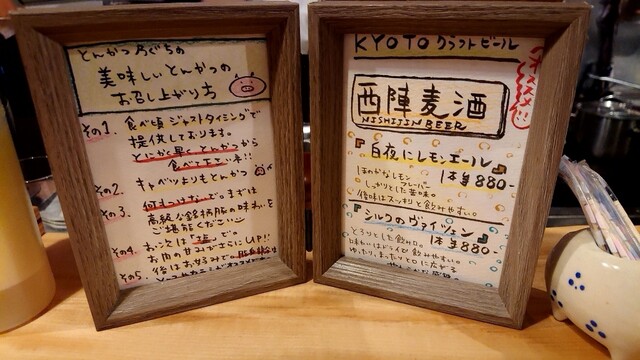 とんかつ
美味しいとんかつの
お召し上がり方
その1. 食べ頃ジャストタイミングで
提供しております。
とにかく早く とんかつから
食べて下さい!!
その2. キャベツよりもとんかつ
その3. 何もつけないで。まずは
高級公銘柄豚の味わいを
ご堪能ください
その4. おつぎは塩で。
お肉の甘みがさらにUP!!
その5. 後はお好みで。
KYOTO クラフトビール
オススメ!!
西陣麦酒
NISHIJIN BEER
『白夜にレモンエール』
1本 ¥880-
ほのかなレモン
フレーバー
しっかりとした苦味の
後味はスッキリと飲みやすい。
『シルクのヴァイツェン』
1本 ¥880-
とろりとした飲み口。
飲みやすい。